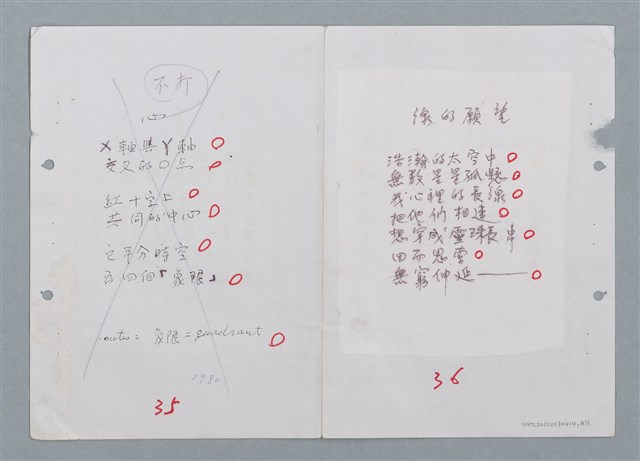 不打
心
X軸與Y軸
交叉的O点
紅十字上
共同的中心
它平分時空
為四個「象限」
notes: 象限=quadrant
1980
35
線的願望
浩瀚的太空中
無數星星孤懸
我心裡的長線
把他們相連
想穿成靈珠長串
因而思索
無窮伸延——
36